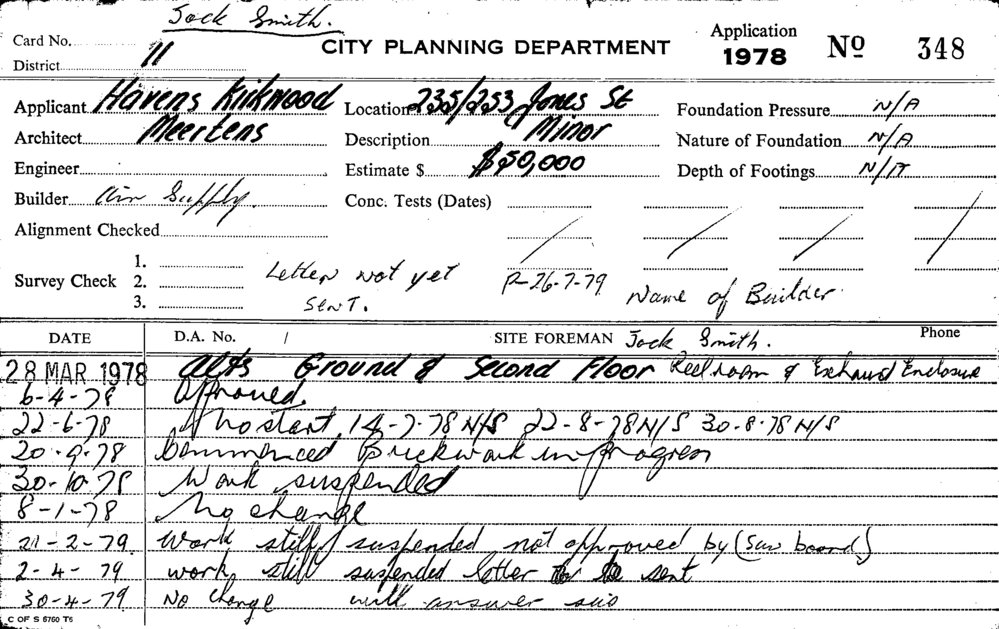 Jock Smith.
Card No. CITY PLANNING DEPARTMENT Application 1978 No 348
District 11
Applicant Havens Kirkwood Location 235/253 Jones St Foundation Pressure N/A
Architect Meertens Description Minor Nature of Foundation N/A
Engineer Estimate $ $50,000 Depth of Footings N/A
Builder Air Supply. Conc. Tests (Dates)
Alignment Checked
Survey Check 1. 2. 3. Letter not yet sent. P-26-7-79 Name of Builder.
DATE D.A. No. / SITE FOREMAN Jock Smith. Phone
28 MAR 1978 Alts Ground & Second Floor Reel room & Exhaust Enclosure
6-4-78 Approved.
22-6-78 No start 14-7-78 N/S 22-8-78 N/S 30-8-78 N/S
20-9-78 Commenced Brickwork in progress
30-10-78 Work suspended
8-1-78 No change
21-2-79. Work still suspended not approved by (Sew board)
2-4-79 work still suspended letter to be sent
30-4-79 No change will answer
C OF S 6760 T6